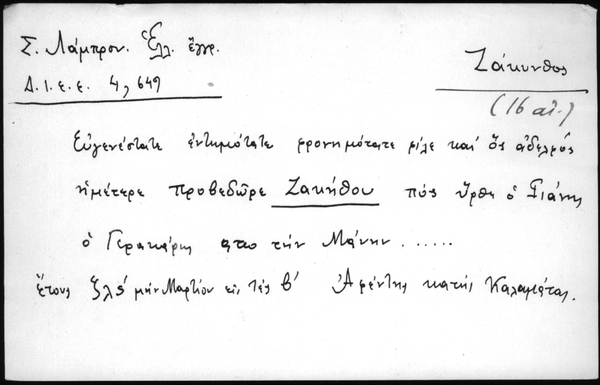 Σ. Λάμπρου. Ἑλλ. ἔγγρ.
Δ.Ι.Ε.Ε. 4, 649
Ζάκυνθος
(16 αἰ.)
Εὐγενέστατε ἐντημότατε φρονημότατε φίλε καὶ ὃς ἀδελφός
ἡμέτερε προβεδῶρε Ζακήθου πός ἤρθε ὁ Γιάνης
ὁ Γερακάρης απο τὴν Μάνην ......
ἔτους ζλς´ μὴν Μαρτίου εἰς τὲς β´ Ἀφέντης κατής Καλαμάτας.